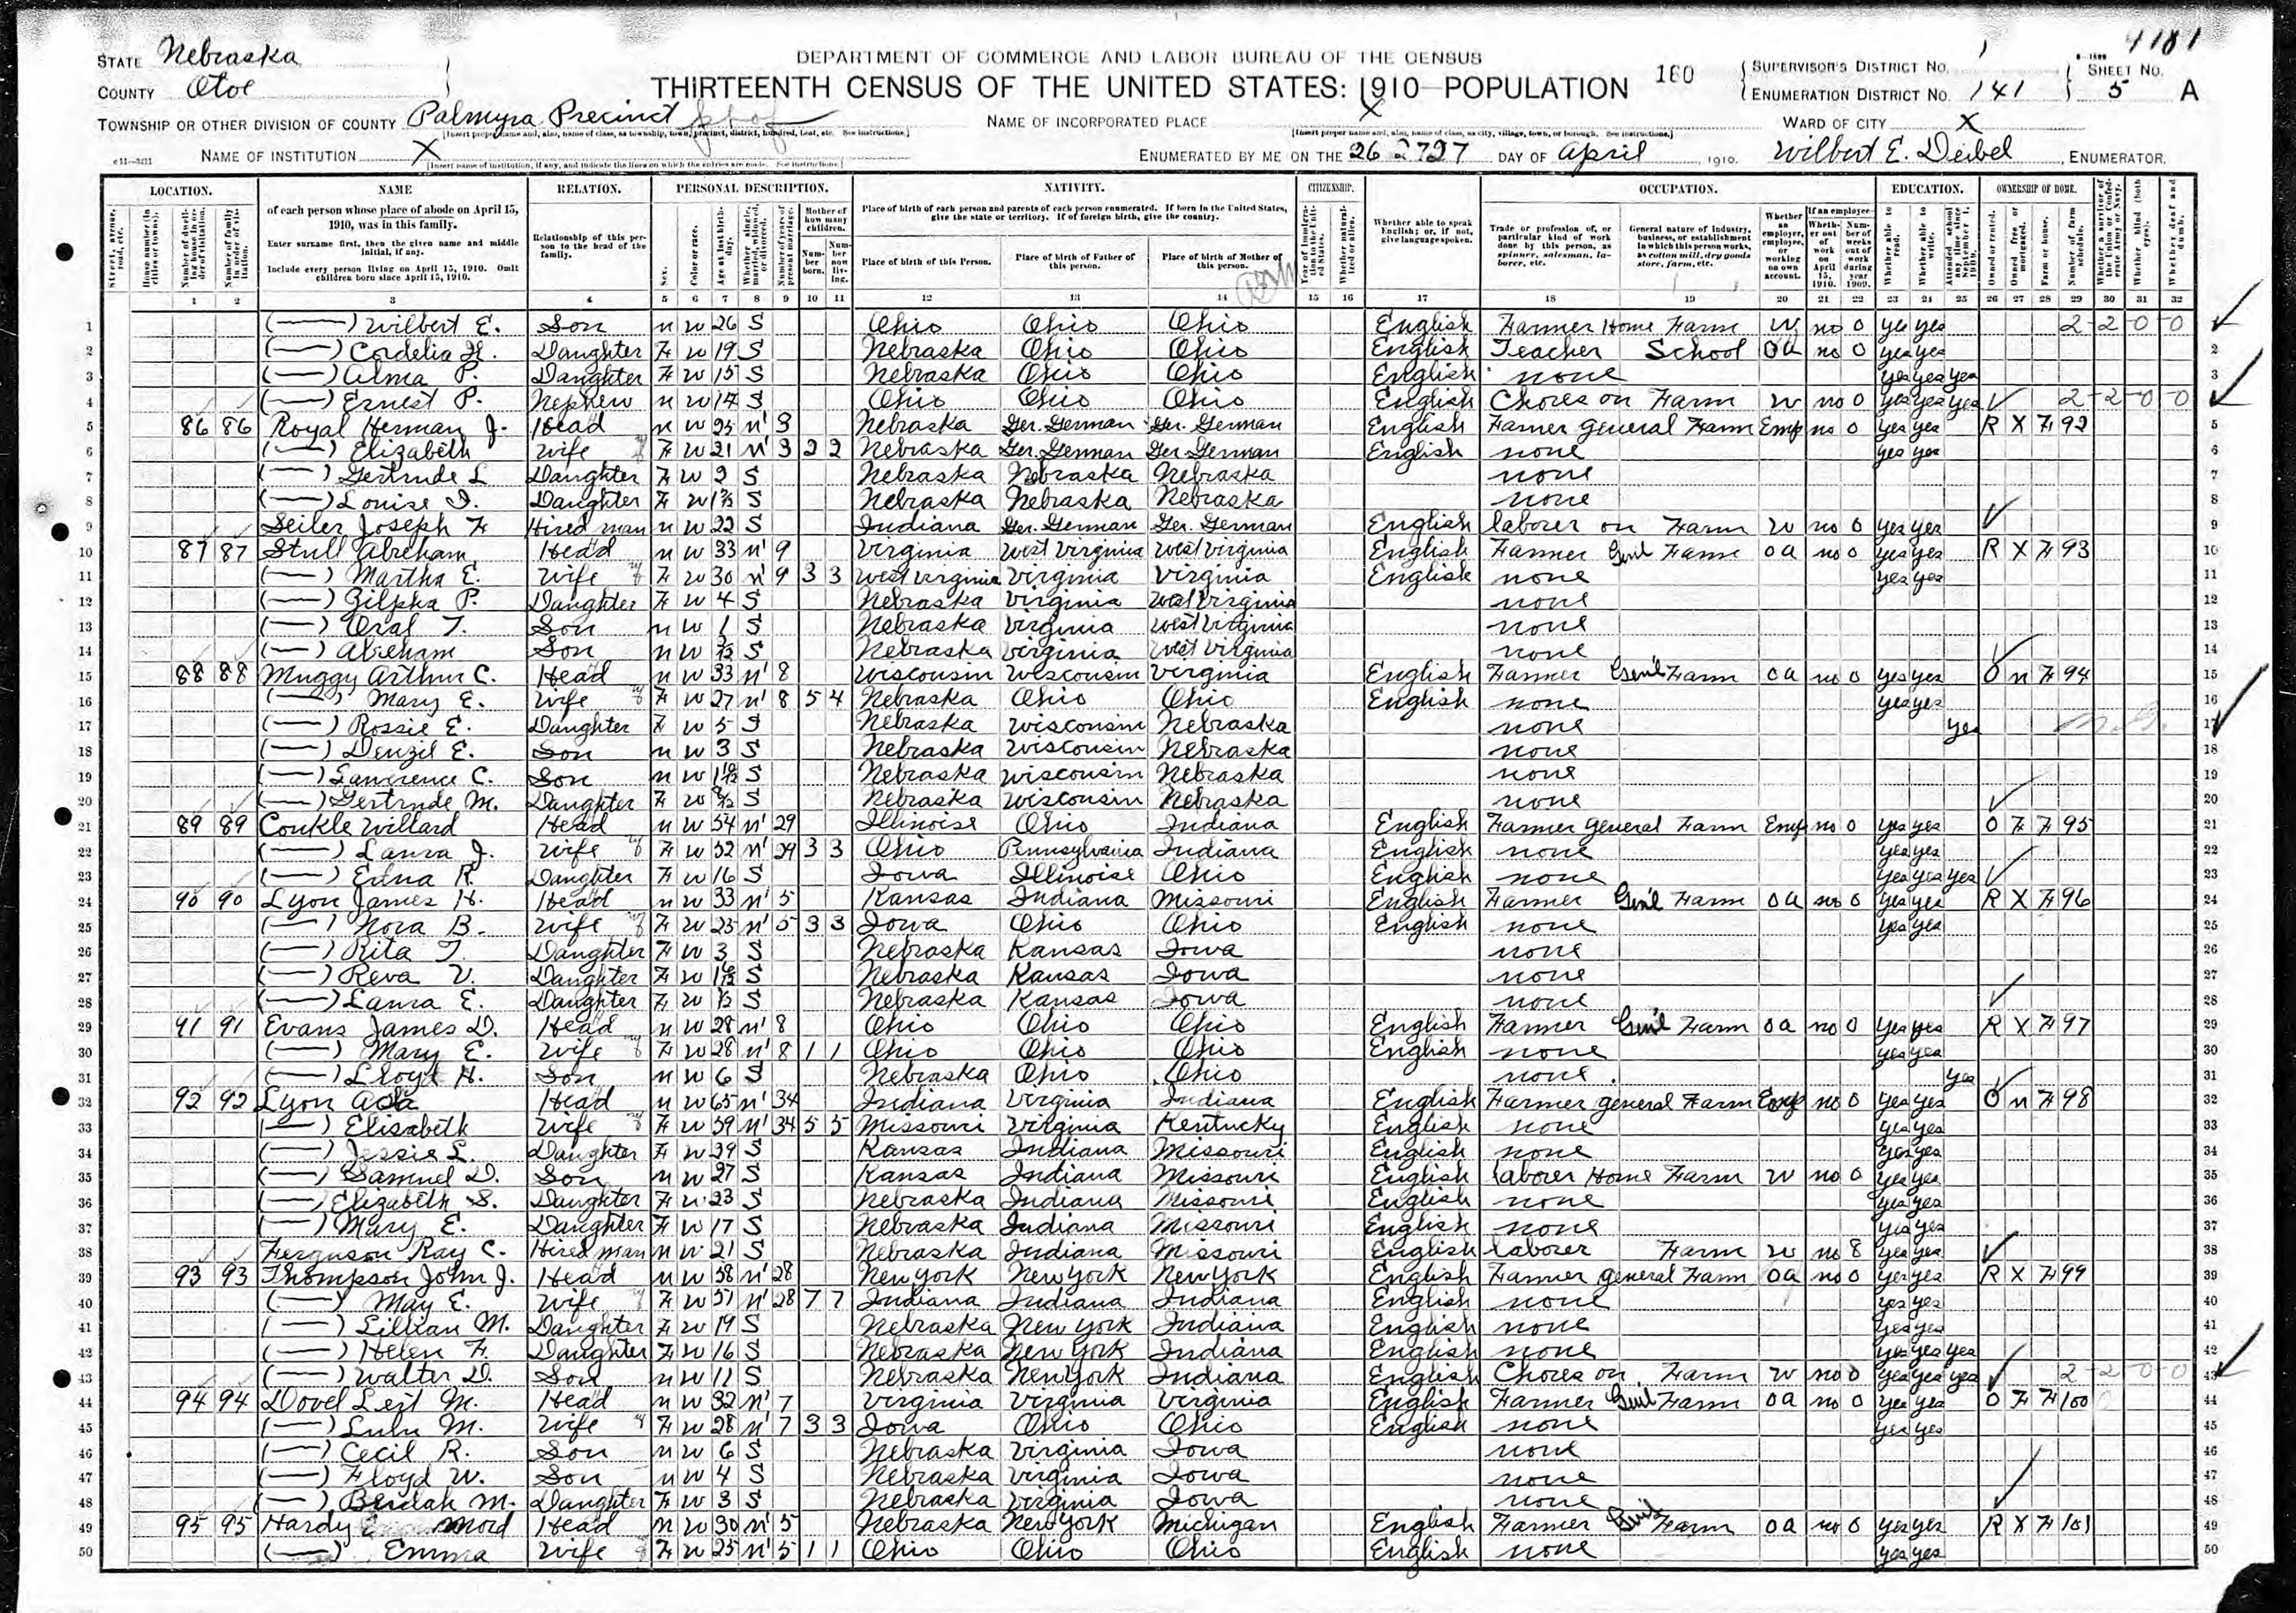 4181
STATE Nebraska
COUNTY Otoe
DEPARTMENT OF COMMERCE AND LABOR BUREAU OF THE CENSUS
THIRTEENTH CENSUS OF THE UNITED STATES: 1910 POPULATION
160
SUPERVISOR'S DISTRICT NO. 1
ENUMERATION DISTRICT NO. 141
SHEET NO. 5 A
TOWNSHIP OR OTHER DIVISION OF COUNTY Palmyra Precinct
NAME OF INCORPORATED PLACE X
WARD OF CITY X
NAME OF INSTITUTION X
ENUMERATED BY ME ON THE 26 2727 DAY OF April, 1910. Wilbert E. Deibel, ENUMERATOR.
LOCATION. NAME RELATION. PERSONAL DESCRIPTION. NATIVITY. CITIZENSHIP. OCCUPATION. EDUCATION. OWNERSHIP OF HOME.
of each person whose place of abode on April 15, 1910, was in this family.
Enter surname first, then the given name and middle initial, if any.
Include every person living on April 15, 1910. Omit children born since April 15, 1910.
Relationship of this person to the head of the family.
Place of birth of each person and parents of each person enumerated. If born in the United States, give the state or territory. If of foreign birth, give the country.
Place of birth of this Person. Place of birth of Father of this person. Place of birth of Mother of this person.
Whether able to speak English; or, if not, give language spoken.
1 2 3 4 5 6 7 8 9 10 11 12 13 14 15 16 17 18 19 20 21 22 23 24 25 26 27 28 29 30 31 32
1 (—) Wilbert E. Son M W 26 S Ohio Ohio Ohio English Farmer Home Farm W no 0 yes yes 2-2-0-0
2 (—) Cordelia H. Daughter F W 19 S Nebraska Ohio Ohio English Teacher School OA no 0 yes yes
3 (—) Alma P. Daughter F W 15 S Nebraska Ohio Ohio English none yes yes yes
4 (—) Ernest P. Nephew M W 14 S Ohio Ohio Ohio English Chores on Farm W no 0 yes yes yes 2-2-0-0
5 86 86 Royal Herman J. Head M W 25 M' 3 Nebraska Ger. German Ger. German English Farmer general Farm Emp no 0 yes yes R X F 92
6 (—) Elizabeth Wife F W 21 M' 3 2 2 Nebraska Ger. German Ger German English none yes yes
7 (—) Gertrude L Daughter F W 2 S Nebraska Nebraska Nebraska none
8 (—) Louise I. Daughter F W S Nebraska Nebraska Nebraska none
9 Seiler Joseph F Hired man M W 22 S Indiana Ger. German Ger. German English laborer on Farm W no 0 yes yes
10 87 87 Stull Abreham Head M W 33 M' 9 Virginia West Virginia West Virginia English Farmer Gen'l Farm OA no 0 yes yes R X F 93
11 (—) Martha E. Wife F W 30 M' 9 3 3 West Virginia Virginia Virginia English none yes yes
12 (—) Zilpha P. Daughter F W 4 S Nebraska Virginia West Virginia none
13 (—) Oral T. Son M W 1 S Nebraska Virginia West Virginia none
14 (—) Abreham Son M W S Nebraska Virginia West Virginia none
15 88 88 Muggy Arthur C. Head M W 33 M' 8 Wisconsin Wisconsin Virginia English Farmer Gen'l Farm OA no 0 yes yes O M F 94
16 (—) Mary E. Wife F W 27 M' 8 5 4 Nebraska Ohio Ohio English none yes yes
17 (—) Rossie E. Daughter F W 5 S Nebraska Wisconsin Nebraska none yes
18 (—) Denzil E. Son M W 3 S Nebraska Wisconsin Nebraska none
19 (—) Lawrence C. Son M W S Nebraska Wisconsin Nebraska none
20 (—) Gertrude M. Daughter F W S Nebraska Wisconsin Nebraska none
21 89 89 Conkle Willard Head M W 54 M' 29 Illinoise Ohio Indiana English Farmer general Farm Emp no 0 yes yes O F F 95
22 (—) Laura J. Wife F W 52 M' 29 3 3 Ohio Pennsylvania Indiana English none yes yes
23 (—) Edna R. Daughter F W 16 S Iowa Illinoise Ohio English none yes yes yes
24 90 90 Lyon James H. Head M W 33 M' 5 Kansas Indiana Missouri English Farmer Gen'l Farm OA no 0 yes yes R X F 96
25 (—) Nora B. Wife F W 25 M' 5 3 3 Iowa Ohio Ohio English none yes yes
26 (—) Rita T. Daughter F W 3 S Nebraska Kansas Iowa none
27 (—) Reva V. Daughter F W S Nebraska Kansas Iowa none
28 (—) Laura E. Daughter F W S Nebraska Kansas Iowa none
29 91 91 Evans James D. Head M W 28 M' 8 Ohio Ohio Ohio English Farmer Gen'l Farm OA no 0 yes yes R X F 97
30 (—) Mary E. Wife F W 28 M' 8 1 1 Ohio Ohio Ohio English none yes yes
31 (—) Lloyd H. Son M W 6 S Nebraska Ohio Ohio none yes
32 92 92 Lyon Head M W 65 M' 34 Indiana Virginia Indiana English Farmer general Farm Emp no 0 yes yes O M F 98
33 (—) Elisabeth Wife F W 59 M' 34 5 5 Missouri Virginia Kentucky English none yes yes
34 (—) Jessie L. Daughter F W 29 S Kansas Indiana Missouri English none yes yes
35 (—) Samuel D. Son M W 27 S Kansas Indiana Missouri English laborer Home Farm W no 0 yes yes
36 (—) Elizabeth S. Daughter F W 23 S Nebraska Indiana Missouri English none yes yes
37 (—) Mary E. Daughter F W 17 S Nebraska Indiana Missouri English none yes yes
38 Ferguson Ray C. Hired man M W 21 S Nebraska Indiana Missouri English laborer Farm W no 8 yes yes
39 93 93 Thompson John J. Head M W 58 M' 28 New York New York New York English Farmer general Farm OA no 0 yes yes R X F 99
40 (—) May E. Wife F W 51 M' 28 7 7 Indiana Indiana Indiana English none yes yes
41 (—) Lillian M. Daughter F W 19 S Nebraska New York Indiana English none yes yes
42 (—) Helen F. Daughter F W 16 S Nebraska New York Indiana English none yes yes yes
43 (—) Walter D. Son M W 11 S Nebraska New York Indiana English Chores on Farm W no 0 yes yes yes 2-2-0-0
44 94 94 Dovel M. Head M W 32 M' 7 Virginia Virginia Virginia English Farmer Gen'l Farm OA no 0 yes yes O F F 100
45 (—) Lulu M. Wife F W 28 M' 7 3 3 Iowa Ohio Ohio English none yes yes
46 (—) Cecil R. Son M W 6 S Nebraska Virginia Iowa none
47 (—) Floyd W. Son M W 4 S Nebraska Virginia Iowa none
48 (—) Beulah M. Daughter F W 3 S Nebraska Virginia Iowa none
49 95 95 Hardy Head M W 30 M' 5 Nebraska New York Michigan English Farmer Gen'l Farm OA no 0 yes yes R X F 101
50 (—) Emma Wife F W 25 M' 5 1 1 Ohio Ohio Ohio English none yes yes